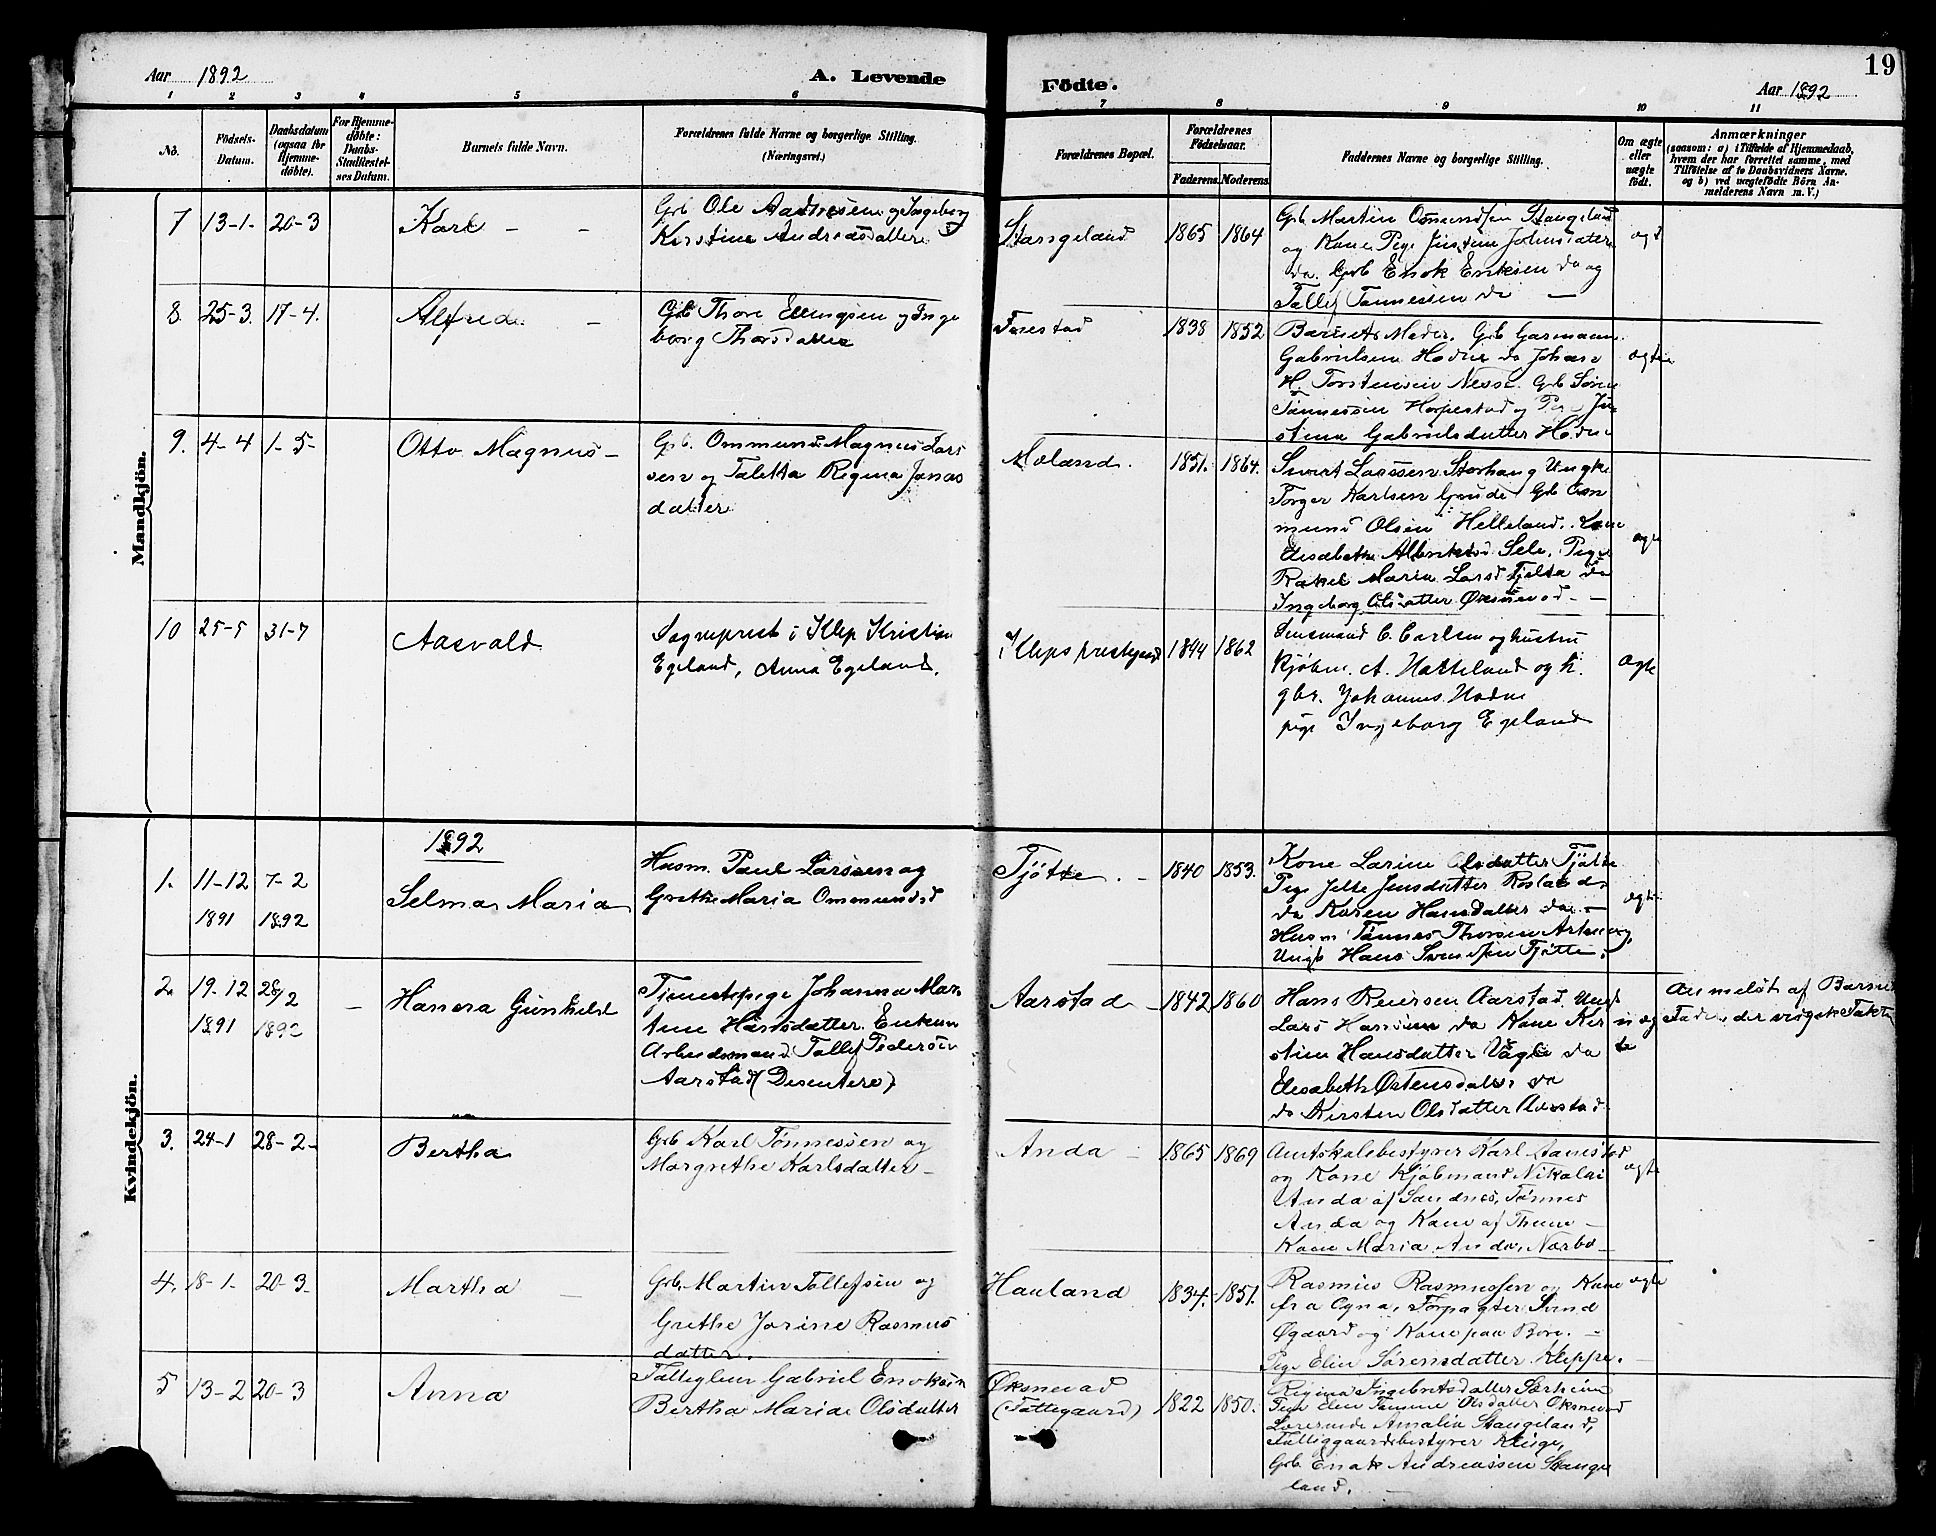 Aar 1892
A. Levende
Födte.
Aar 1892
19
1 2 3 4 5 6 7 8 9 10 11
No.
Födsels-
Datum.
Daabsdatum
(ogsaa for
Hjemme-
döbte).
For Hjemme-
döbte:
Daabs-
Stadfæstel-
ses Datum.
Barnets fulde Navn.
Forældrenes fulde Navne og borgerlige Stilling.
(Næringsvei.)
Forældrenes Bopæl.
Forældrenes
Födselsaar.
Faderens. Moderens.
Faddernes Navne og borgerlige Stilling.
Om ægte
eller
uægte
födt.
Anmærkninger
(saasom: a) i Tilfælde af Hjemmedaab,
hvem der har forrettet samme, med
Tilföielse af to Daabsvidners Navne.
og b) ved uægtefödte Börn An-
melderens Navn m. V.)
Mandkjön.
7 13-1- 20-3
Karl - -
Grb Ole Aadnesen og Ingeborg
Kirstine Andreasdatter
Stangeland 1865 1864
Grb Martin Osmundsen Stangeland
og Kone Pige Johnsdatter
do. Grb Enok Eriksen do og
Tollef Tønnessen do -
8. 25-3. 17-4.
Alfred. -
Grb Thore Ellingsen og Inge
borg Thorsdatter
1838 1852
Barnets Moder. Grb Garmann
Gabrielsen Hodne do Johan
H. Torstensen Nesse. Grb Søren
Tønnessen Horpestad og Pige Ju-
stina Gabrielsdatter Hodne
ægte
9. 4-4 1-5-
Otto Magnus -
Grb. Ommund Magnus Lars
sen og Taletta Regina Jonas
datter
1851. 1864.
Sivert Larssen Storhaug Ungk
Torger Karlsen Grude Grb Om
mund Olsen Helleland. Kone
Elisabeth Sele. Pige
Rakel Maria Larsd Tjelta do
Ingeborg Olsdatter Øksnevad - -
ægte
10 25-5 31-7
Aasvald
Sogneprest i Klep Kristian
Egeland, Anna Egeland.
Kleps prestegaard 1844 1862
Lensmand C. Carlsen og hustru
Kjøbm. A. Hatteland og h.
gbr. Johannes Hodne
pige Ingeborg Egeland
ægte
Kvindekjön.
1892
1. 11-12 7-2
1891 1892
Selma Maria
Husm. Paul Larssen og
Grethe Maria Ommundsd
Tjøtte. - 1840 1853.
Kone Larine Olsdatter Tjøtte
Pige Jelte Jensdatter Rosland
do Karen Hansdatter do -
Husm Tønnes Thorsen
Ungk Hans Svendsen Tjøtte.
ægte
2. 19-12 28/2
1891 1892
- Hanna Gunhild
Tjenestepige Johanna Mar
tine Hansdatter. Enkem
Arbeidsmand Tollef Pedersen
Aarstad (Desentere)
Aarstad - 1842 1860
Hans Reiersen Aarstad. Ungk
Lars Hansen do Kone Kir
stine Hansdatter Vagle do
Elisabeth Østensdatter do
do Kirsten Olsdatter Aarstad
uæg
te
Anmeldt af Barnets
3. 24-1 28-2-
Bertha
Grb Karl Tønnessen og
Margrethe Karlsdatter -
Anda - 1865 1869
Amtskolebestyrer Karl Aanestad
og Kone Kjøbmand Nikolai
Anda af Sandnes, Tønnes
Anda og Kone af Thime -
Kone Maria Anda, Nærbø -
ægte
4. 18-1. 20-3
Martha -
Grb. Martin Tollefsen og
Grethe Jorine Rasmus
datter.
Hauland 1834. 1851.
Rasmus Rasmussen og Kone
fra Ogna, Forpagter Svend
Øgaard og Kone paa Bore. -
Pige Elin Sørensdatter Kleppe.
ægte
5 13-2 20-3
Anna
Fattiglem Gabriel Enoksen
Bertha Maria Olsdatter
Øksnevad
(Fattiggaard) 1822 1850.
Regina Ingebretsdatter Særheim
Pige Elen Tomine Olsdatter Øksnevad
Lærerinde Amalia Stangeland,
Fattiggaardsbestyrer Kluge,
Grb Enok Andreassen Stange
land. -